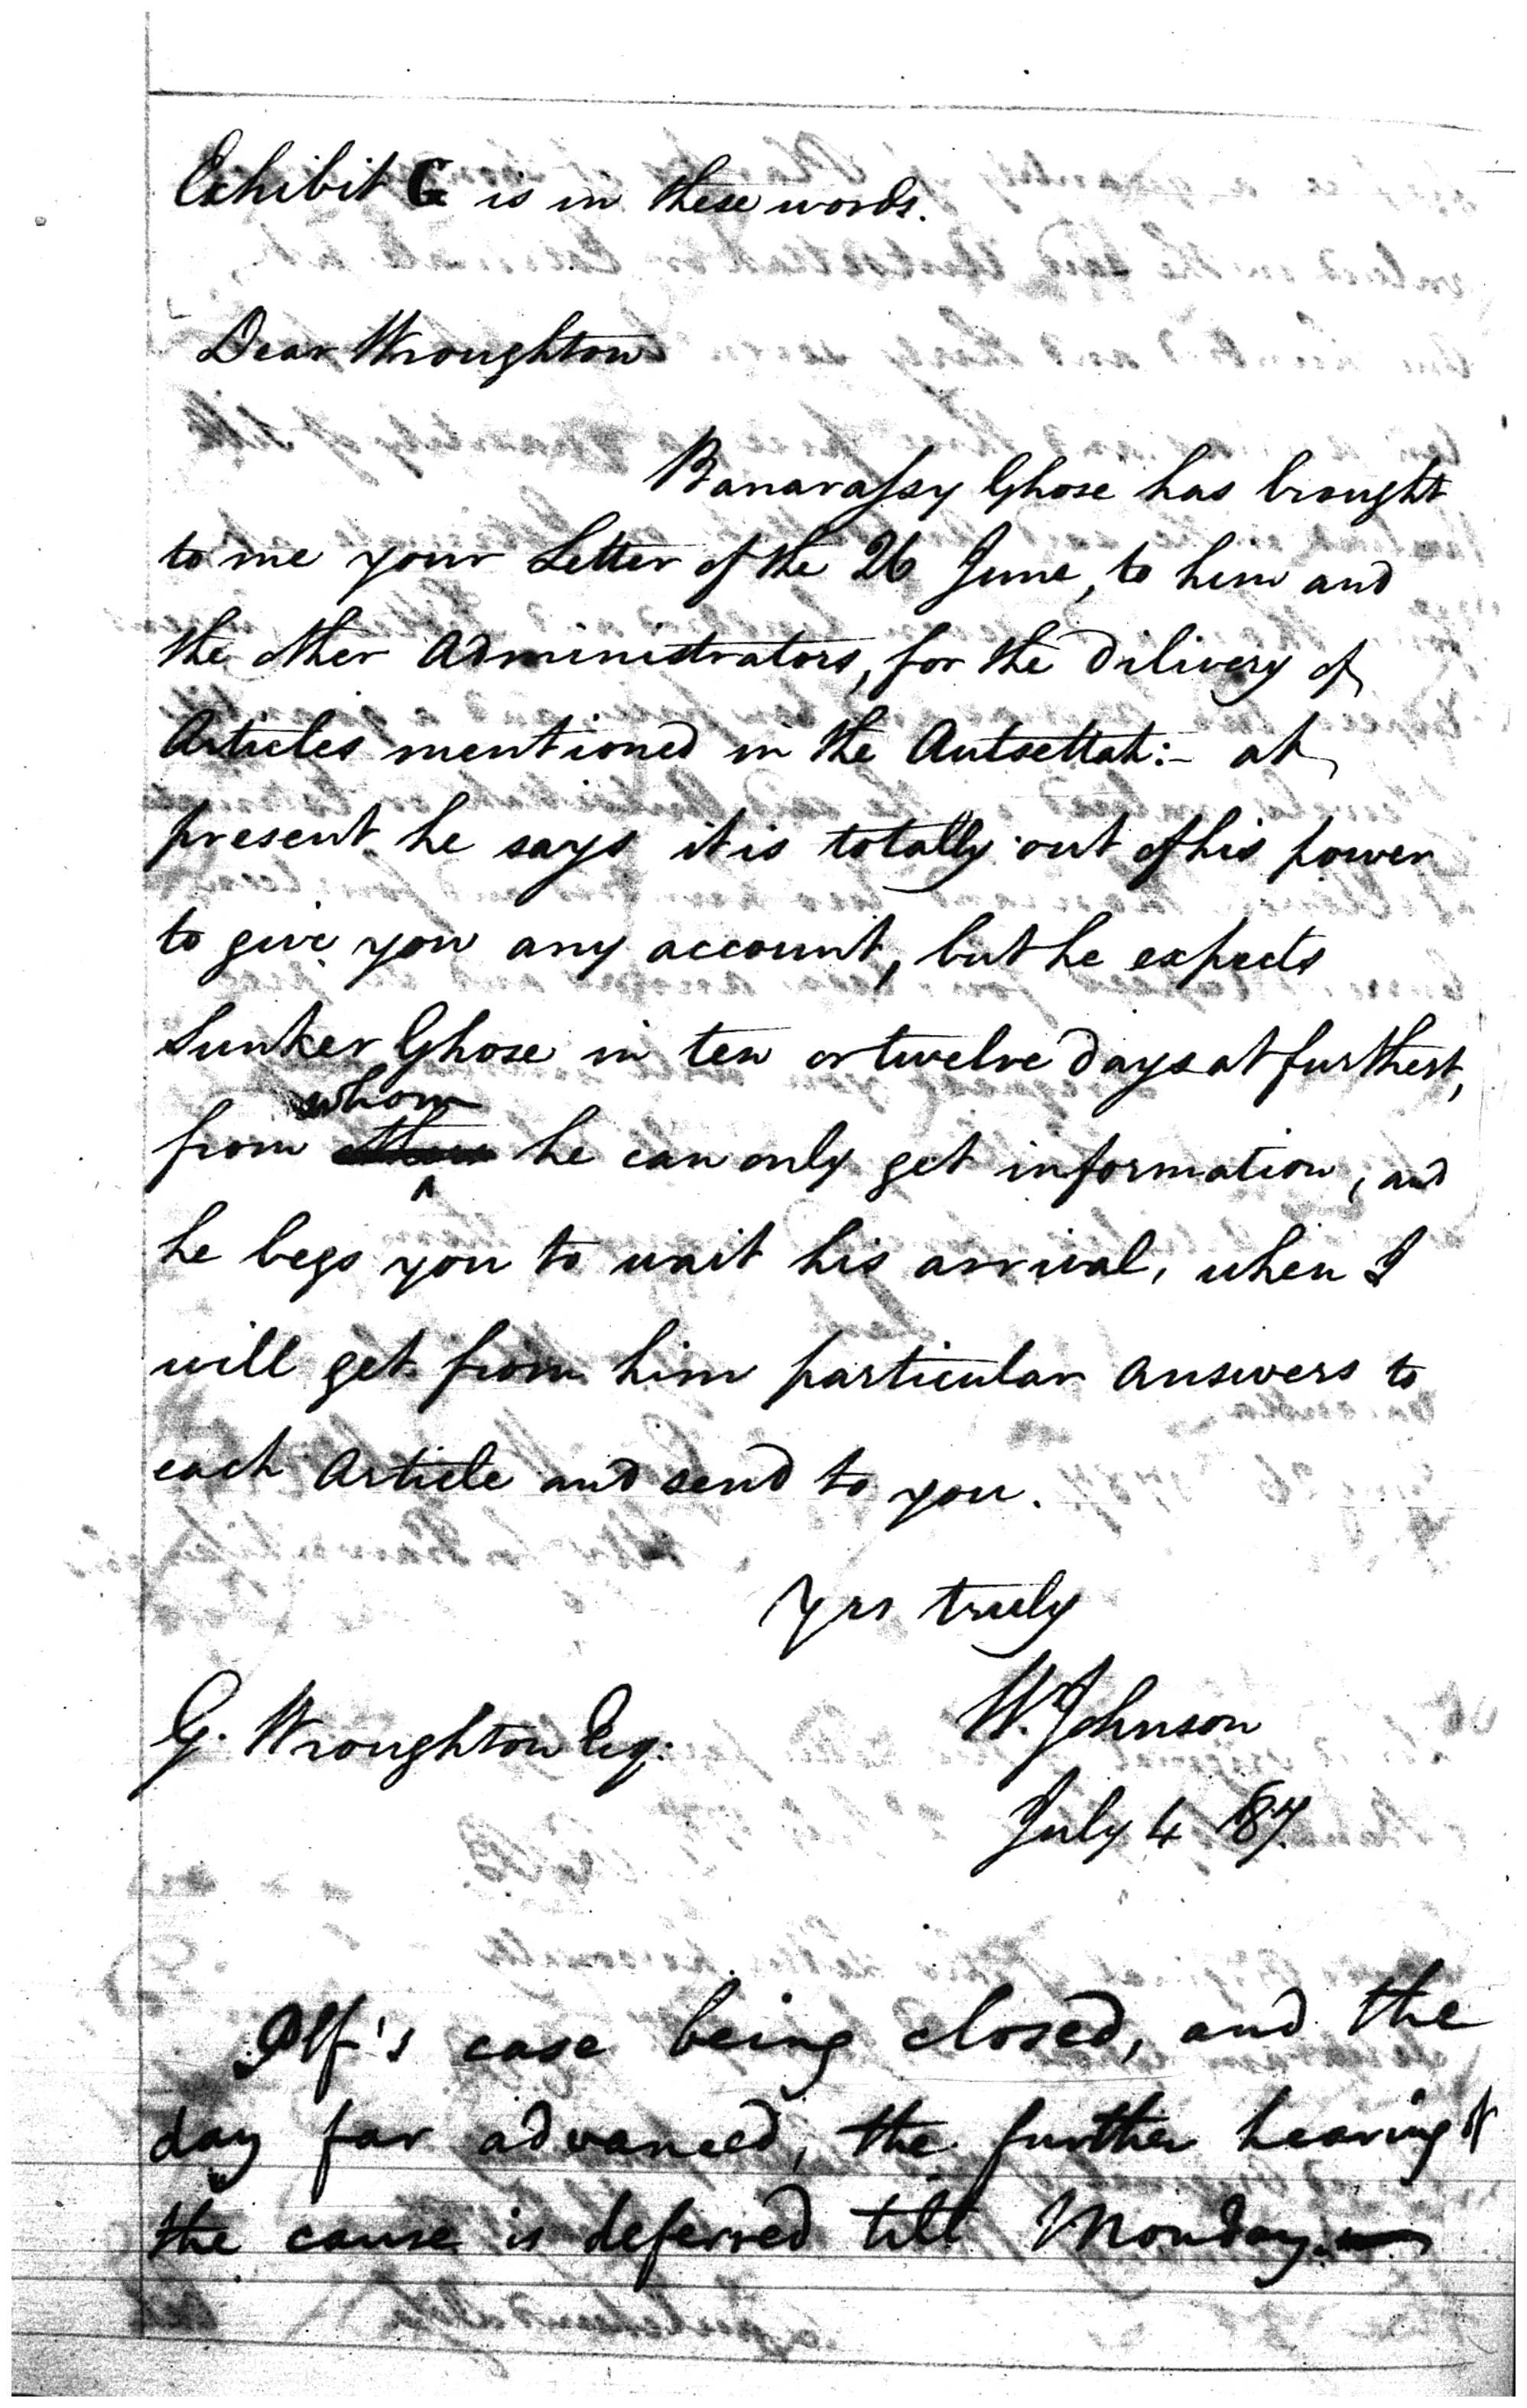 Exhibit G is in these words.
Dear Wroughton
Banarassy Ghose has brought
to me your Letter of the 26 June, to him and
the other Administrators, for the dilivery of
Articles mentioned in the Autsettah:- at
present he says it is totally out of his power
to give you any account, but he expects
Sunker Ghose in ten or twelve days at furthest,
whom
from he can only get information, and
he begs you to wait his arrival, when I
will get from him particular answers to
each Article and send to you.
Yrs truly
W. Johnson
G. Wroughton Esq.
July 4 87.
Plf's case being closed, and the
day far advanced, the further hearing of
the cause is deferred till Monday.